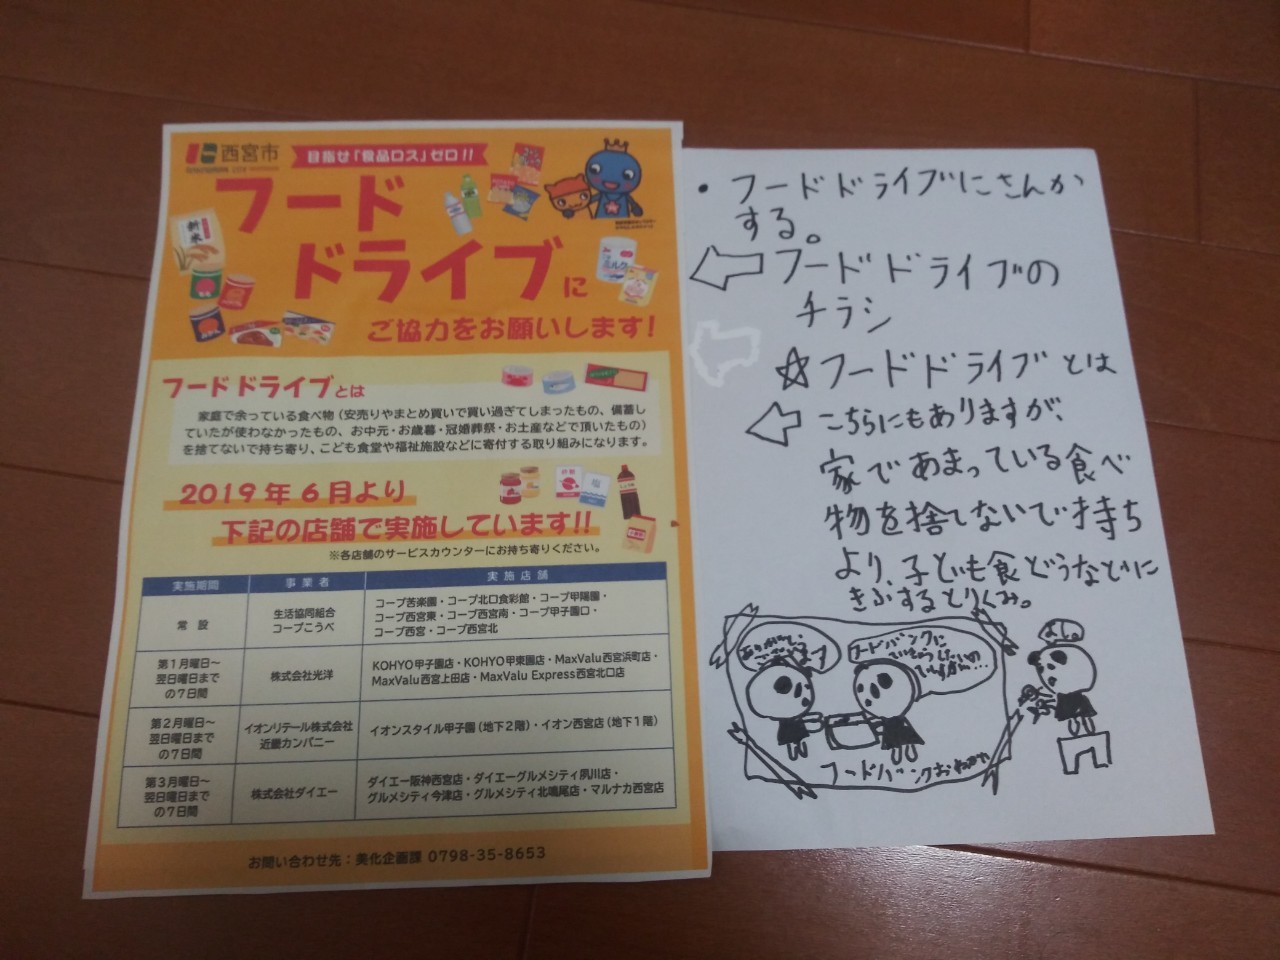 西宮市
目指せ「食品ロス」ゼロ!!
フード
ドライブに
ご協力をお願いします!
新米
ミルク
フードドライブとは
家庭で余っている食べ物(安売りやまとめ買いで買い過ぎてしまったもの、備蓄し
ていたが使わなかったもの、お中元・お歳暮・冠婚葬祭・お土産などで頂いたもの)
を捨てないで持ち寄り、こども食堂や福祉施設などに寄付する取り組みになります。
2019年6月より
下記の店舗で実施しています!!
※各店舗のサービスカウンターにお持ち寄りください。
実施期間 事業者 実施店舗
常設 生活協同組合 コープこうべ コープ苦楽園・コープ北口食彩館・コープ甲陽園・
コープ西宮東・コープ西宮南・コープ甲子園口・
コープ西宮・コープ西宮北
第1月曜日~
翌日曜日まで
の7日間
株式会社光洋
KOHYO甲子園店・KOHYO甲東園店・MaxValu西宮浜町店・
MaxValu西宮上田店・MaxValu Express西宮北口店
第2月曜日~
翌日曜日まで
の7日間
イオンリテール株式会社
近畿カンパニー
イオンスタイル甲子園(地下2階)・イオン西宮店(地下1階)
第3月曜日~
翌日曜日まで
の7日間
株式会社ダイエー
ダイエー阪神西宮店・ダイエーグルメシティ夙川店・
グルメシティ今津店・グルメシティ北鳴尾店・マルナカ西宮店
お問い合わせ先:美化企画課 0798-35-8653
・フードドライブにさんか
する。
フードドライブの
チラシ
☆フードドライブとは
こちらにもありますが、
家であまっている食べ
物を捨てしないで持ち
より、子ども食どうなどに
きふするとりくみ。
ありがとう
ございます
フードバンクに
よし。